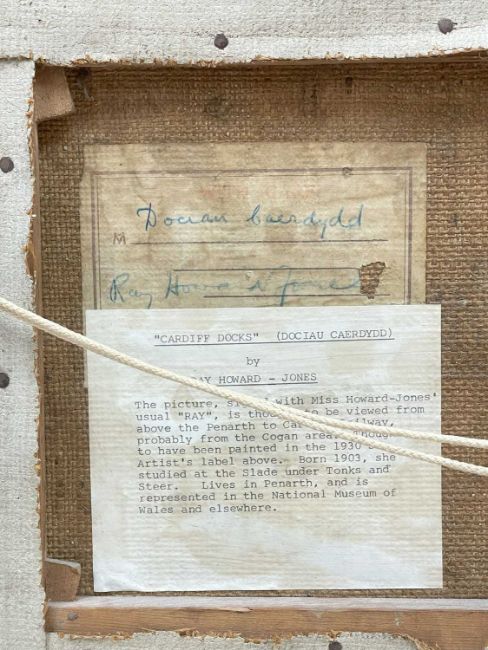 M Dociau Caerdydd
Ray Howard Jones
"CARDIFF DOCKS" (DOCIAU CAERDYDD)
by
RAY HOWARD - JONES
The picture, with Miss Howard-Jones'
usual "RAY", is to be viewed from
above the Penarth to
probably from the Cogan
to have been painted in the 1930
Artist's label above. Born 1903, she
studied at the Slade under Tonks and
Steer. Lives in Penarth, and is
represented in the National Museum of
Wales and elsewhere.